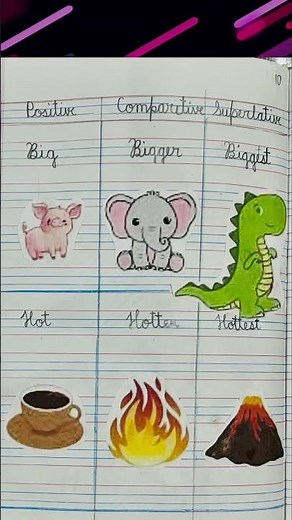 10
Positive Comparitive Superlative
Big Bigger Biggist
Hot Hotter Hottest